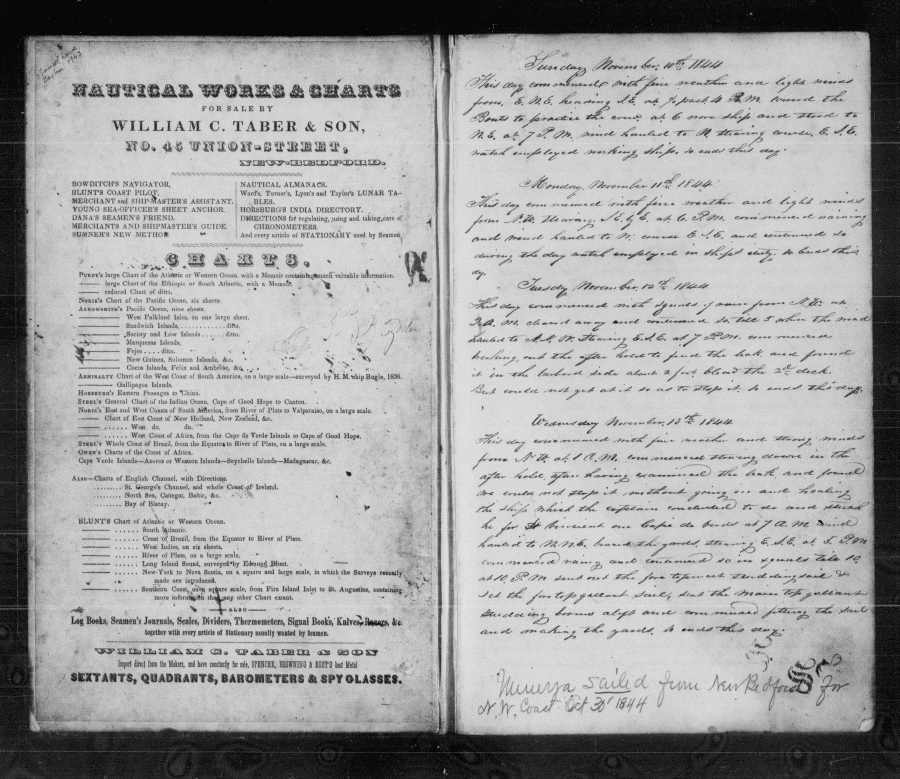 NAUTICAL WORKS & CHARTS
FOR SALE BY
WILLIAM C. TABER & SON,
NO. 45 UNION-STREET,
NEW-BEDFORD.
BOWDITCH'S NAVIGATOR,
BLUNT'S COAST PILOT,
MERCHANT and SHIP-MASTER'S ASSISTANT.
YOUNG SEA-OFFICER'S SHEET ANCHOR.
DANA'S SEAMEN'S FRIEND.
MERCHANTS AND SHIPMASTER'S GUIDE.
SUMNER'S NEW METHOD
NAUTICAL ALMANACS.
Ward's, Turner's, Lyon's and Taylor's LUNAR TA-
BLES.
HORSBURG'S INDIA DIRECTORY.
DIRECTIONS for regulating, using and taking care of
CHRONOMETERS.
And every article of STATIONARY used by Seamen
CHARTS.
PURDY'S large Chart of the Atlantic or Western Ocean, with a Memoir containing much valuable information.
large Chart of the Ethiopic or South Atlantic, with a Memoir.
reduced Chart of ditto.
NORIE'S Chart of the Pacific Ocean, six sheets.
ARROWSMITH'S Pacific Ocean, nine sheets.
West Falkland Isles, on one large sheet.
Sandwich Islands, ditto.
Society and Low Islands ditto.
Marquesas Islands,
Fejee ditto.
New Guinea, Solomon Islands, &c.
Cocos Islands, Felix and Ambrose, &c.
ADMIRALTY Chart of the West Coast of South America, on a large scale—surveyed by H. M. ship Bugle, 1836.
Gallipagos Islands.
HORSBURG'S Eastern Passages to China.
STEEL'S General Chart of the Indian Ocean, Cape of Good Hope to Canton.
NORIE'S East and West Coasts of South America, from River of Plate to Valparaiso, on a large scale.
Chart of East Coast of New Holland, New Zealand, &c.
West do. do.
West Coast of Africa, from the Cape de Verde Islands to Cape of Good Hope.
STEEL'S Whole Coast of Brazil, from the Equator to River of Plate, on a large scale.
OWEN'S Charts of the Coast of Africa.
Cape Verde Islands—Azores or Western Islands—Seychelle Islands—Madagascar, &c.
ALSO—Charts of English Channel, with Directions
St. George's Channel, and whole Coast of Ireland.
North Sea, Categat, Baltic, &c.
Bay of Biscay.
BLUNT'S Chart of Atlantic or Western Ocean.
South Atlantic.
Coast of Brazil, from the Equator to River of Plate.
West Indies, on six sheets.
River of Plate, on a large scale.
Long Island Sound, surveyed by Edmund Blunt.
New-York to Nova Scotia, on a square and large scale, in which the Surveys recently
made are introduced.
Southern Coast, on a square scale, from Fire Island Inlet to St. Augustine, containing
more information than any other Chart extant.
ALSO
Log Books, Seamen's Journals, Scales, Dividers, Thermometers, Signal Books, Knives, Razors, &c.
together with every article of Stationary usually wanted by Seamen.
WILLIAM C. TABER & SON
Import direct from the Makers, and have constantly for sale, SPENCER, BROWNING & RUST'S best Metal
SEXTANTS, QUADRANTS, BAROMETERS & SPY GLASSES.
Sunday November, 10th 1844
This day commenced with fine weather and light winds
from, E. N.E. heading S.E. at ½ past 4 P.M. lowered the
Boats to practice the crew. at 6 wore ship and stood to
N.E. at 7 P.M. wind hauled to N stearing course. E.S.E.
watch employed working ship. so ends this day.
Monday, November 11th 1844
This day commenced with fine weather and light winds
from N.W. stearing. S.E. by E. at 6. P.M. commenced raining
and wind hauled to W. course E.S.E. and continued so
during the day watch employed in ships duty. so Ends this
day.
Tuesday November, 12th 1844
This day commenced with squals of rain from N.W. at
A.M. cleared away and continued so till 5 when the wind
hauled to N.N.W. stearing E.S.E. at 7 P.M. commenced
breaking out the after hold to find the leak and found
it in the larbord side about 2 foot. below the 2nd deck.
But could not get at it so as to stop it. so ends this day.
Wednesday November 13th 1844
This day commenced with fine weather and strong winds
from N.W. at 1 A.M. commenced stowing down in the
after hold. after having examined the leak and found
we could not stop it without going in and heaving
the ship which the captain concluded to do and steer
he for St Vincient one Cape de verds at 7 A.M. wind
hauled to N.N.E. braced the yards, stearing E.S.E. at 5. P.M
commenced rainy and continued so in squals till 10.
at 10. P.M sent out the fore topmast studdingsail &
set the foretopgallant sail, sent the main topgallant
studding booms aloft and commenced fitting the sail
and making the yards. so ends this day.
Minerva sailed from New Bedford for
N.W. Coast Oct 30 1844